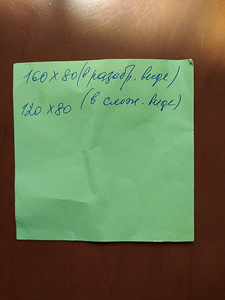 160 х 80 (в разобр. виде)
120 х 80 (в слож. виде)